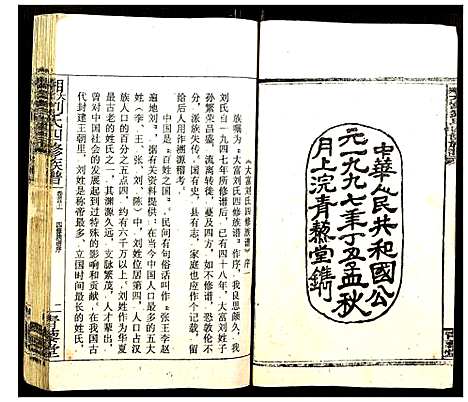 中華人民共和國公
元一九九七年丁丑孟秋
月上浣青藜堂鐫
青藜堂
《大富刘氏四修族谱》序一
族嘱为：《大富刘氏四修族谱》作序，我良思颇久，我
刘氏自一九四七年所修谱后，已有四十八年，大富刘姓子
孙繁荣昌盛，流离转徙，蔓及四方，如不修谱，恐敦伦不
分，派族失传。国有史，县有志，家庭也应作个记载，留
给后人用作溯源稽考。
中国是“百姓之国”。民间有句俗话叫作“张王李赵
遍地刘。”中国刘姓之多，在当今中国人口最多的五大
姓（李、王、张、刘、陈）中，刘姓位居第四，人口占汉
族人口的百分之五点四，约有六千万以上，刘姓作为华夏
最古老的姓氏之一，其渊源久远，支脉繁茂，人才辈出，
曾对中国社会的发展起到过特殊的影响和贡献。在我国古
代封建王朝里，刘姓是称帝最多，立国时间最长的姓氏，
湘乡刘氏四修族谱
卷首上
四修族谱序
二
青藜堂